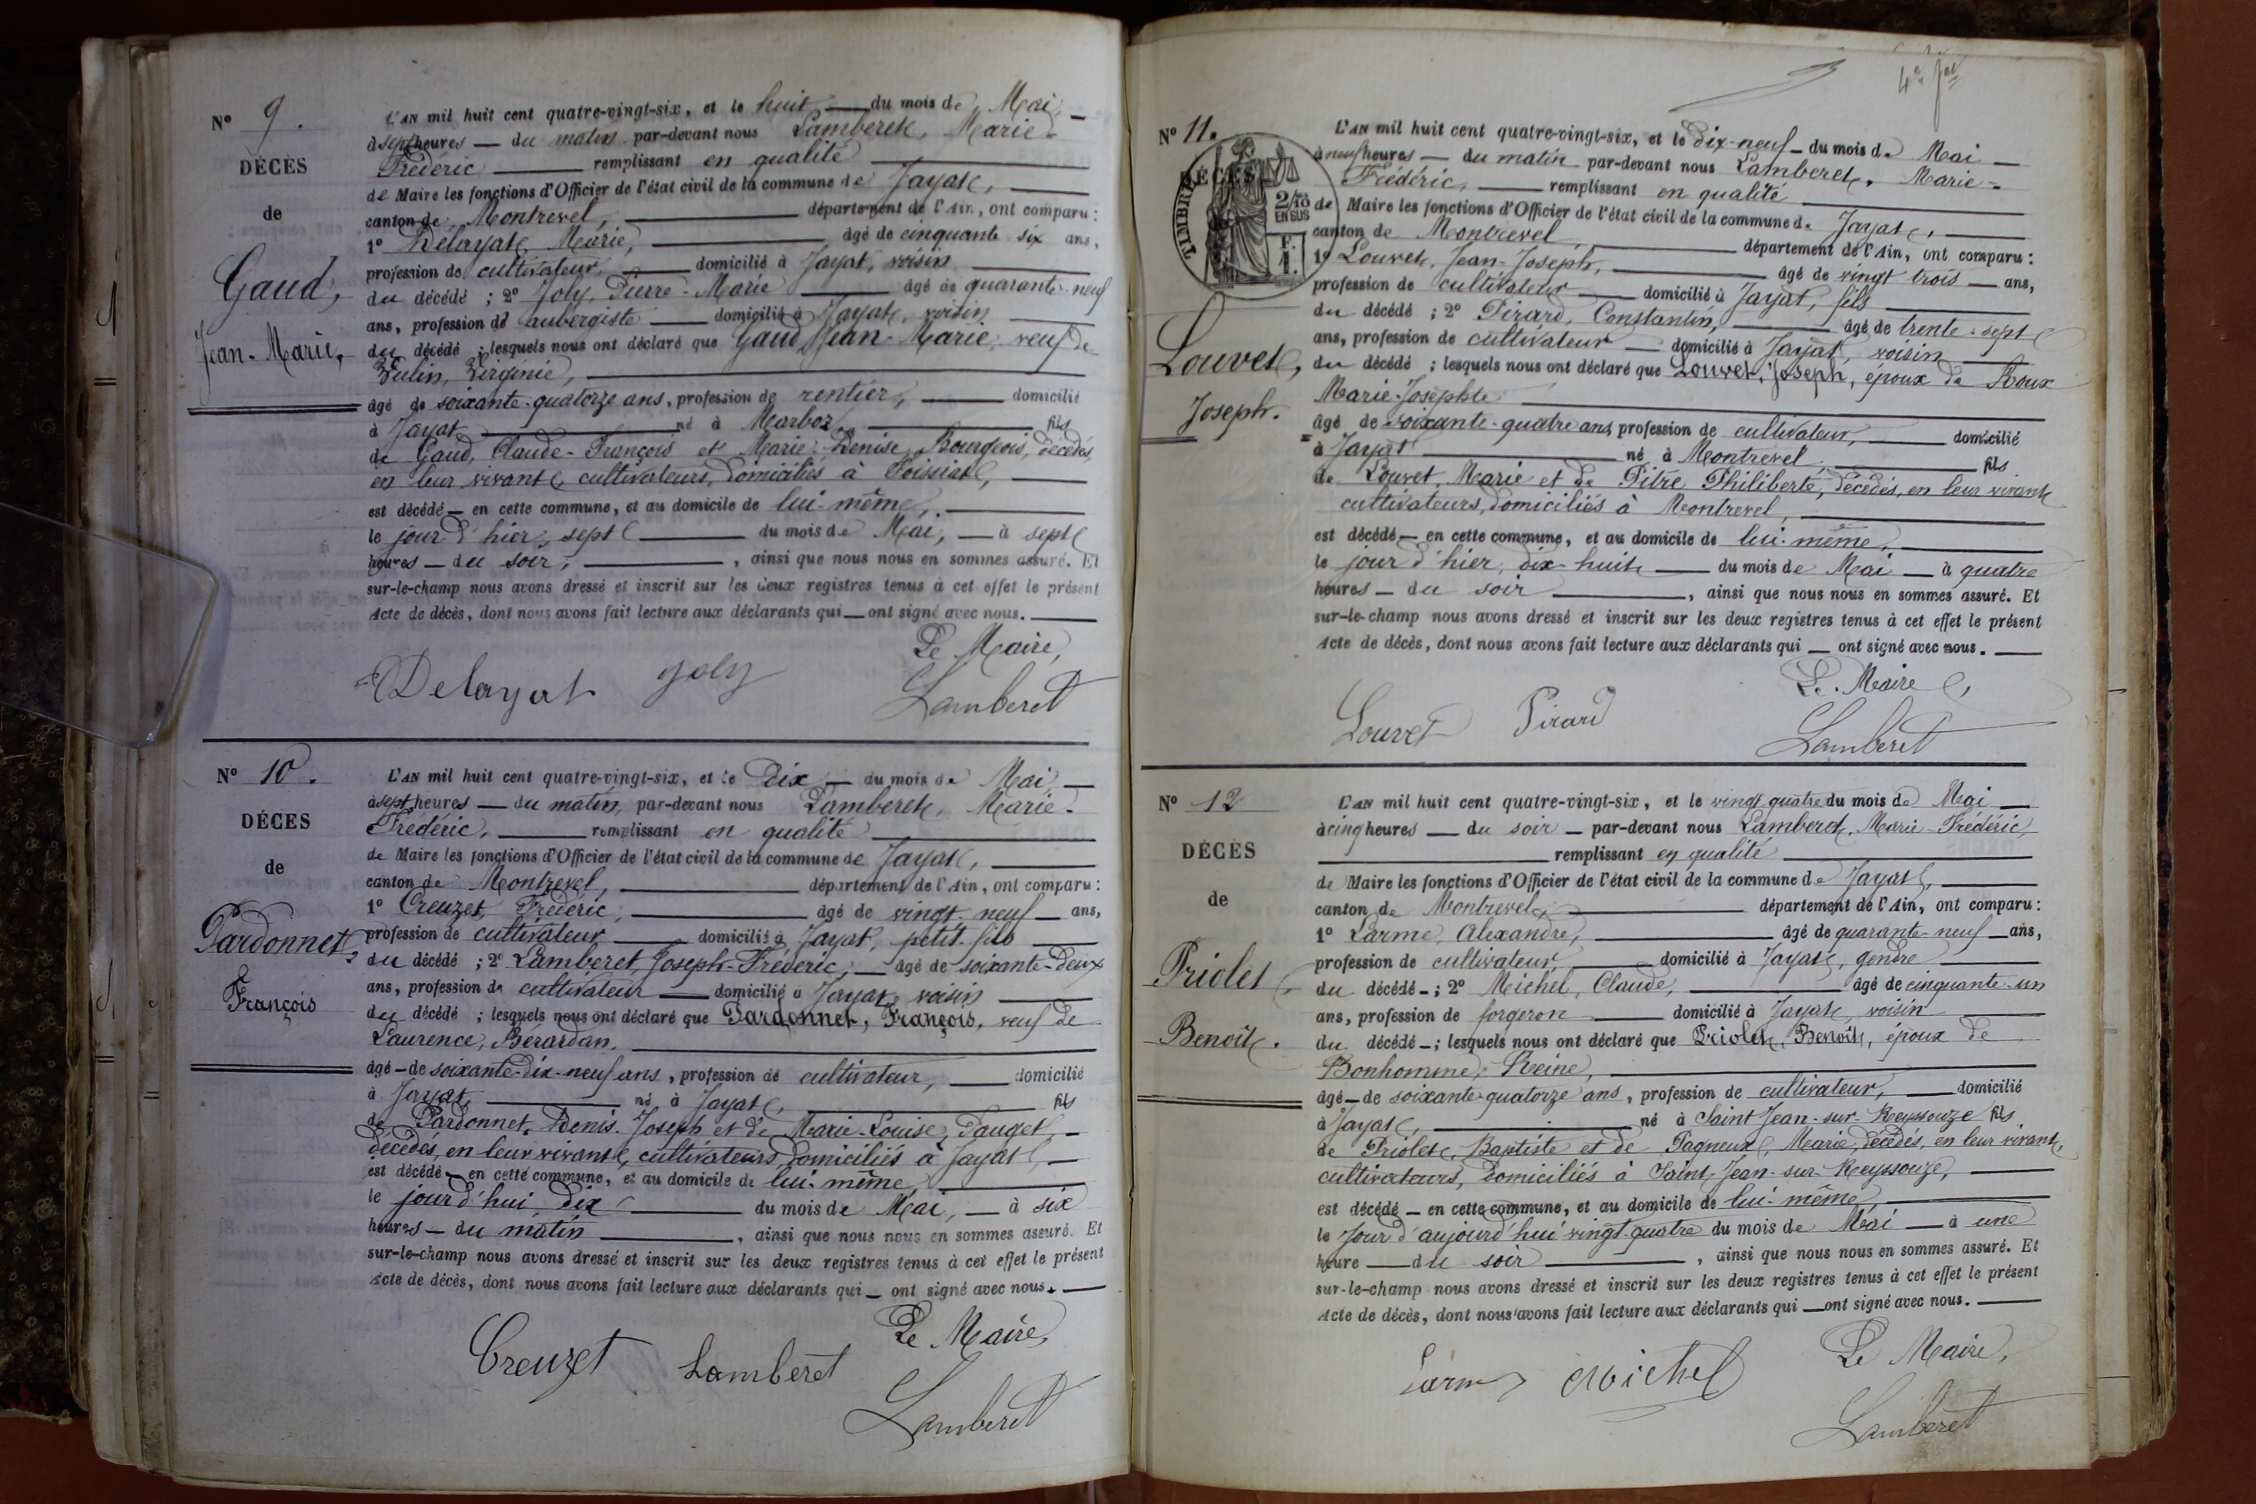 N° 9.
DÉCÈS
de
Gaud,
Jean-Marie,
L'AN mil huit cent quatre-vingt-six, et le huit du mois de Mai,
à sept heures du matin par-devant nous Lamberet, Marie-
Frédéric remplissant en qualité
de Maire les fonctions d'Officier de l'état civil de la commune de Jayat,
canton de Montrevel, département de l'Ain, ont comparu :
1° Delayat, Marie, âgé de cinquante six ans,
profession de cultivateur, domicilié à Jayat, voisin
du décédé ; 2° Joly, Pierre-Marie âgé de quarante-neuf
ans, profession de aubergiste domicilié à Jayat, voisin
du décédé ; lesquels nous ont déclaré que Gaud Jean-Marie, veuf de
Virginie,
âgé de soixante-quatorze ans, profession de rentier, domicilié
à Jayat né à Marboz, fils
de Gaud, Claude-François et Marie-Denise Bourgeois, décédés,
en leur vivant, cultivateurs, domiciliés à Foissiat,
est décédé en cette commune, et au domicile de lui-même,
le jour d'hier, sept du mois de Mai, à sept
heures du soir, , ainsi que nous nous en sommes assuré. Et
sur-le-champ nous avons dressé et inscrit sur les deux registres tenus à cet effet le présent
Acte de décès, dont nous avons fait lecture aux déclarants qui ont signé avec nous.
Le Maire,
Delayat Joly Lamberet
N° 10.
DÉCES
de
Pardonnet,
François
L'AN mil huit cent quatre-vingt-six, et le Dix du mois de Mai,
à sept heures du matin, par-devant nous Lamberet, Marie-
Frédéric, remplissant en qualité
de Maire les fonctions d'Officier de l'état civil de la commune de Jayat,
canton de Montrevel, département de l'Ain, ont comparu :
1° Creuzet, Frédéric, âgé de vingt-neuf ans,
profession de cultivateur domicilié à Jayat, petit-fils
du décédé ; 2° Lamberet, Joseph-Frédéric, âgé de soixante-deux
ans, profession de cultivateur domicilié à Jayat, voisin
du décédé ; lesquels nous ont déclaré que Pardonnet, François, veuf de
Laurence, Bérardan,
âgé de soixante-dix-neuf ans, profession de cultivateur, domicilié
à Jayat, né à Jayat, fils
de Pardonnet, Denis-Joseph et de Marie-Louise, Pauget,
décédés, en leur vivant, cultivateurs, domiciliés à Jayat,
est décédé en cette commune, et au domicile de lui-même,
le jour d'hui, dix du mois de Mai, à six
heures du matin , ainsi que nous nous en sommes assuré. Et
sur-le-champ nous avons dressé et inscrit sur les deux registres tenus à cet effet le présent
Acte de décès, dont nous avons fait lecture aux déclarants qui ont signé avec nous.
Le Maire,
Creuzet Lamberet Lamberet
N° 11.
TIMBRE
2/10
EN SUS
F.
1.
DÉCÈS
Louvet,
Joseph.
L'AN mil huit cent quatre-vingt-six, et le dix-neuf du mois de Mai
à neuf heures du matin par-devant nous Lamberet, Marie-
Frédéric, remplissant en qualité
de Maire les fonctions d'Officier de l'état civil de la commune de Jayat,
canton de Montrevel département de l'Ain, ont comparu :
1° Louvet, Jean-Joseph, âgé de vingt trois ans,
profession de cultivateur domicilié à Jayat, fils
du décédé ; 2° Pirard, Constantin, âgé de trente-sept
ans, profession de cultivateur domicilié à Jayat, voisin
du décédé ; lesquels nous ont déclaré que Louvet, Joseph, époux de Roux
Marie-Josephte
âgé de soixante-quatre ans, profession de cultivateur, domicilié
à Jayat né à Montrevel, fils
de Louvet, Marie et de Pitre Philiberte, décédés, en leur vivant
cultivateurs, domiciliés à Montrevel,
est décédé en cette commune, et au domicile de lui-même,
le jour d'hier, dix-huit du mois de Mai à quatre
heures du soir , ainsi que nous nous en sommes assuré. Et
sur-le-champ nous avons dressé et inscrit sur les deux registres tenus à cet effet le présent
Acte de décès, dont nous avons fait lecture aux déclarants qui ont signé avec nous.
Le Maire,
Louvet Pirard Lamberet
N° 12
DÉCÈS
de
Priolet,
Benoît.
L'AN mil huit cent quatre-vingt-six, et le vingt quatre du mois de Mai
à cinq heures du soir par-devant nous Lamberet, Marie-Frédéric,
remplissant en qualité
de Maire les fonctions d'Officier de l'état civil de la commune de Jayat,
canton de Montrevel, département de l'Ain, ont comparu :
1° Larme, Alexandre, âgé de quarante-neuf ans,
profession de cultivateur, domicilié à Jayat, gendre
du décédé ; 2° Michel, Claude, âgé de cinquante-un
ans, profession de forgeron domicilié à Jayat, voisin
du décédé ; lesquels nous ont déclaré que Priolet, Benoît, époux de
Bonhomme, Reine,
âgé de soixante-quatorze ans, profession de cultivateur, domicilié
à Jayat, né à Saint Jean-sur-Reyssouze fils
de Priolet, Baptiste et de Pagneux, Marie, décédés, en leur vivant,
cultivateurs, domiciliés à Saint-Jean-sur-Reyssouze,
est décédé en cette commune, et au domicile de lui-même,
le jour d'aujourd'hui vingt-quatre du mois de Mai à une
heure du soir , ainsi que nous nous en sommes assuré. Et
sur-le-champ nous avons dressé et inscrit sur les deux registres tenus à cet effet le présent
Acte de décès, dont nous avons fait lecture aux déclarants qui ont signé avec nous.
Le Maire,
Larme Michel Lamberet